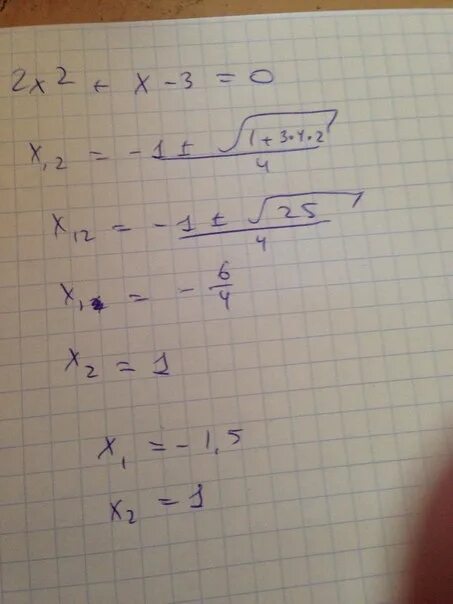 2x² + x - 3 = 0
x₁,₂ = (-1 ± √(1 + 3·4·2))/4
x₁₂ = (-1 ± √25)/4
x₁ = -6/4
x₂ = 1
x₁ = -1,5
x₂ = 1